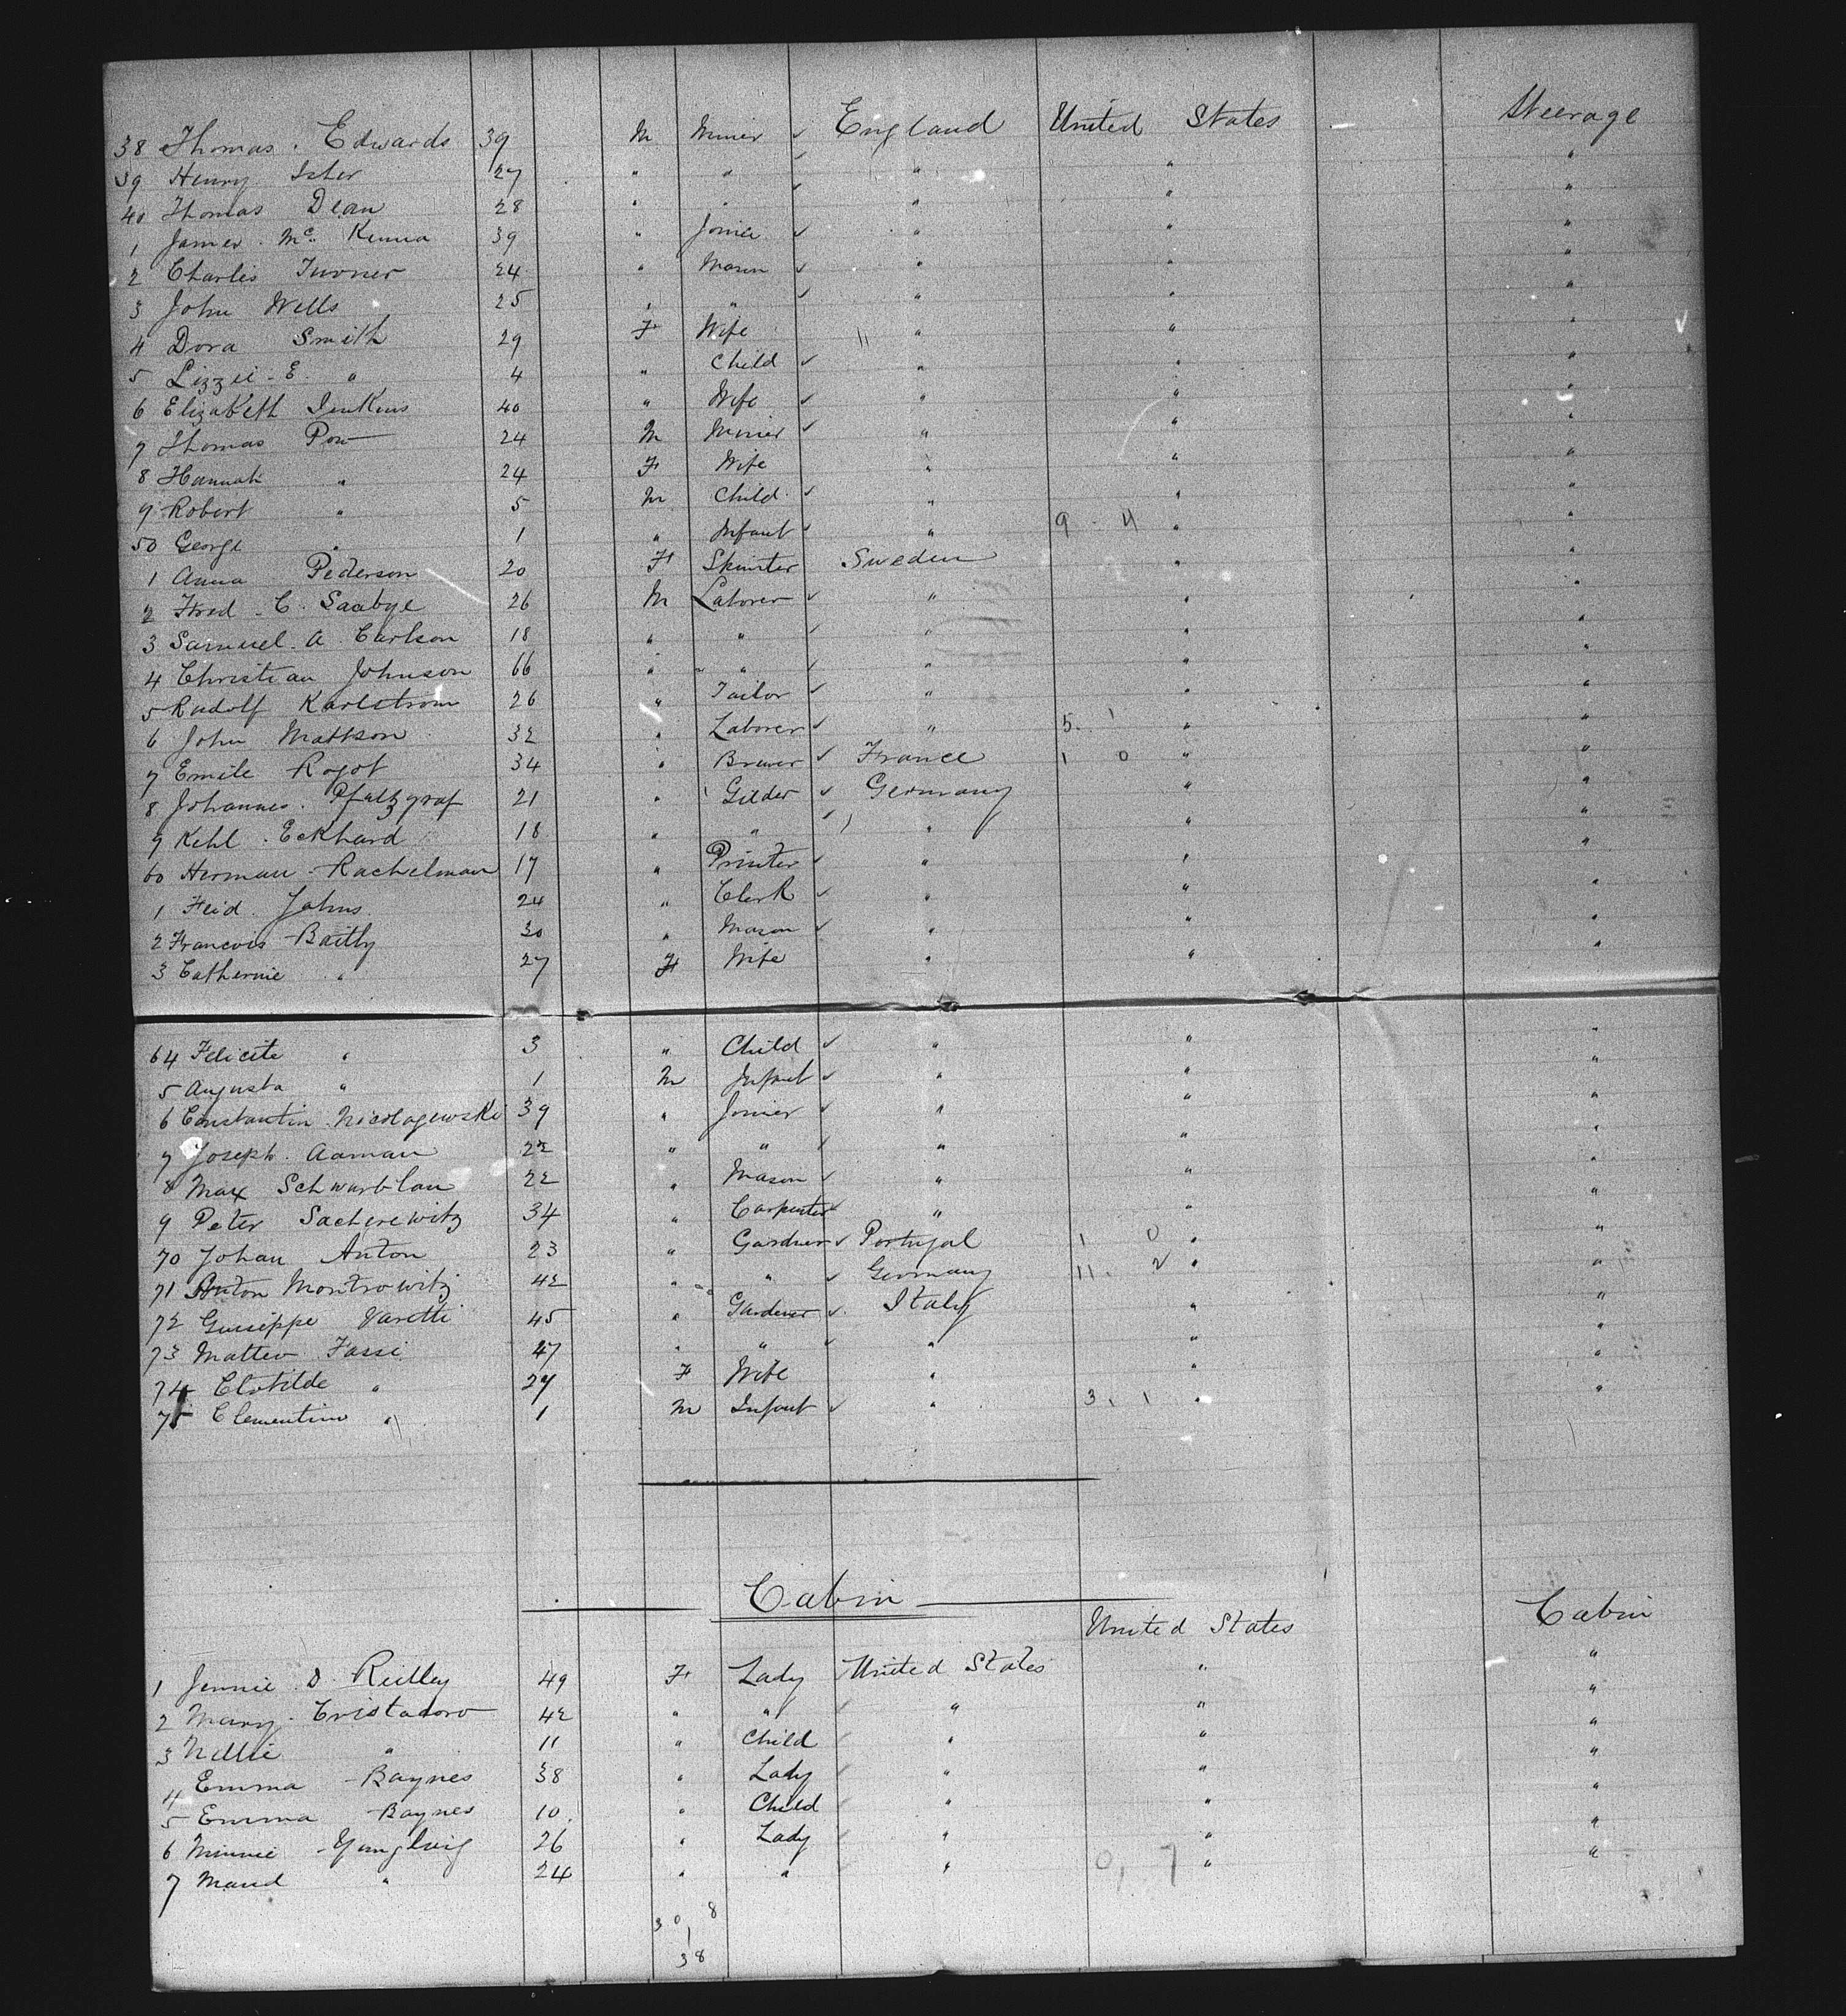 38 Thomas . Edwards 39 M Miner ✓ England United States Steerage
39 Henry Isher 27 " " ✓ " " "
40 Thomas Dean 28 " " ✓ " " "
1 James . Mc. Kenna 39 " Joiner ✓ " " "
2 Charles Turner 24 " Mason ✓ " " "
3 John Wells 25 " " ✓ " " "
4 Dora Smith 29 F Wife " " "
5 Lizzie - E. " 4 " Child ✓ " " "
6 Elizabeth Jenkins 40 " Wife ✓ " " "
7 Thomas Pow 24 M Miner ✓ " " "
8 Hannah " 24 F Wife " " "
9 Robert " 5 M Child ✓ " " "
50 George " 1 " Infant ✓ " 9 - 4 " "
1 Anna Pederson 20 F Spinster Sweden " "
2 Fred - C. Saabye 26 M Laborer ✓ " " "
3 Samuel . A . Carlson 18 " " ✓ " " "
4 Christian Johnson 66 " " ✓ " " "
5 Rudolf Karlstrom 26 " Tailor ✓ " " "
6 John Mattson 32 " Laborer ✓ " 5. 1 " "
7 Emile Rogot 34 " Brewer ✓ France 1 0 " "
8 Johannes . Pfaltzgraf 21 " Gilder ✓ Germany " "
9 Kehl . Eckhard 18 " " ✓ " " "
60 Herman - Rachelman 17 " Printer ✓ " " "
1 Feid . Johns 24 " Clerk ✓ " " "
2 Francois - Bailly 30 " Mason ✓ " " "
3 Catherine " 27 F Wife " " "
64 Felicite " 3 " Child ✓ " " "
5 Augusta " 1 M Infant ✓ " " "
6 Constantin . Nicolagewski 39 " Joiner ✓ " " "
7 Joseph . Aaman 22 " " ✓ " " "
8 Max Schwarblau 22 " Mason ✓ " " "
9 Peter Sacherewitz 34 " Carpenter ✓ " " "
70 Johan Anton 23 " Gardner ✓ Portugal 1 0 " "
71 Anton Montrowitz 42 " " ✓ Germany 11. 2 " "
72 Guiseppe Varetti 45 " Gardener ✓ Italy " "
73 Matteo Fassi 47 " " ✓ " " "
74 Clotilde " 27 F Wife " " "
75 Clementino " 1 M Infant ✓ " 3. 1 " "
Cabin
United States Cabin
1 Jennie . D . Reilley 49 F Lady United States " "
2 Mary . Cristadoro 42 " " ✓ " " "
3 Nellie " 11 " Child ✓ " " "
4 Emma - Baynes 38 " Lady ✓ " " "
5 Emma Baynes 10 " Child ✓ " " "
6 Minnie 26 " Lady ✓ " " "
7 Maud " 24 " " ✓ " 0, 7 " "
30, 8
38